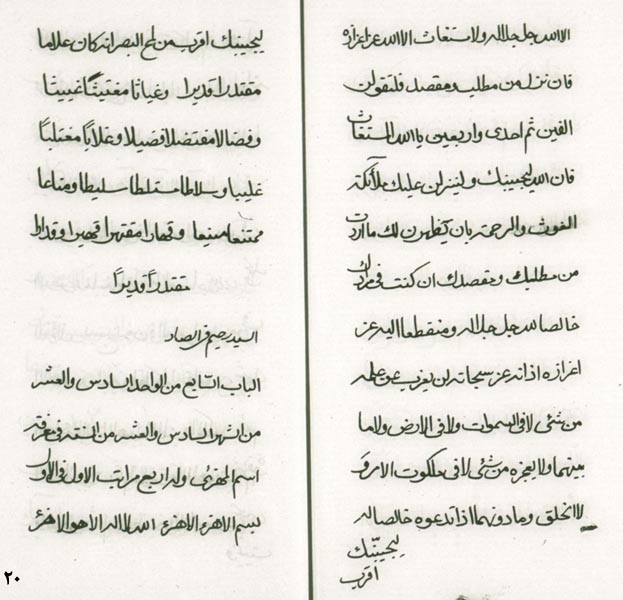 الا الله جل جلاله ولا مستغاث الا الله عز اعزازه
فان نزل من مطلب ومقصد فلتقولن
الفين ثم احدى واربعين يا الله المستغاث
فان الله ليجيبنك ولينزلن عليك ملائكة
الغوث والرحمة بان يظهرن لك ما اردت
من مطلبك ومقصدك ان كنت فى
خالصا لله جل جلاله ومنقطعا اليه عز
اعزازه اذ انه عز سبحانه لن يعزب عن علمه
من شئ لا فى السموات ولا فى الارض ولا ما
بينهما ولا يعجزه من شئ لا فى ملكوت الامر و
لا الخلق وما دونهما اذا تدعوه خالصا له
ليجيبنك
اقرب
ليجيبنك اقرب من لمح البصر انه كان علاما
مقتدرا قديرا وغياثا مغتيثا غييثا
وفضالا مفتضلا فضيلا وغلابا مغتلبا
غليبا وسلاطا مستلطا سليطا ومناعا
ممتنعا منيعا وقهارا مقتهرا قهيرا وقدارا
مقتدرا قديرا
السيد رحيم فى الصاد
الباب السابع من الواحد السادس والعشر
من الشهر السادس والعشر من السنة فى معرفة
اسم المهزئ وله اربع مراتب الاول فى الاول
بسم الله الاهزء الاهزء الله لا اله الا هو الاهزء
٢٠